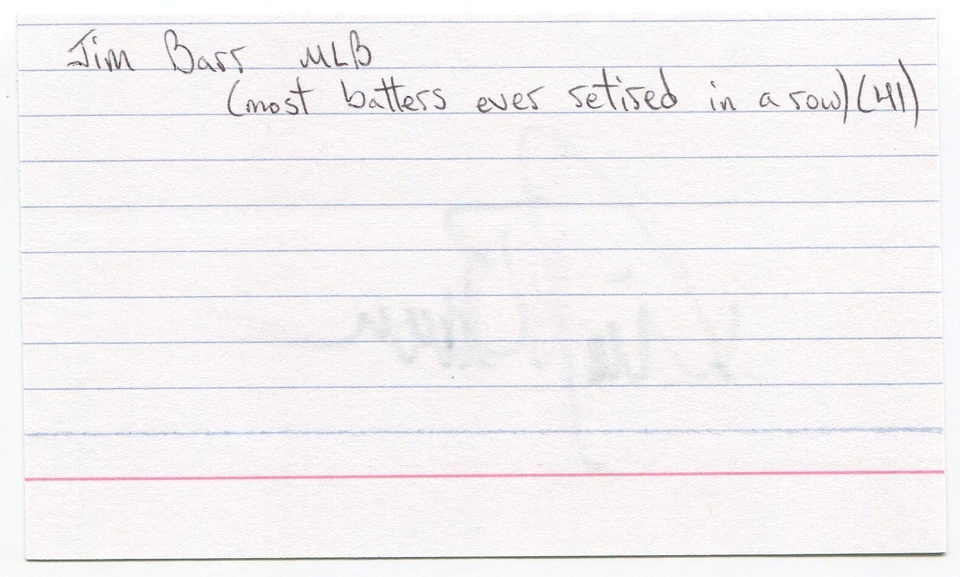 Jim Barr MLB
(most batters ever retired in a row) (41)